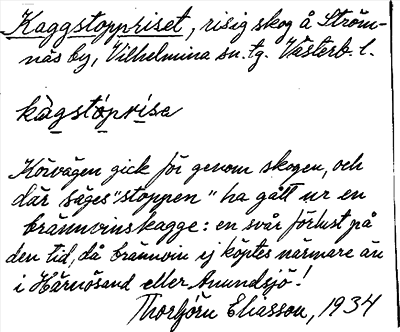 Kaggstoppriset, risig skog å Ström-
näs by, Vilhelmina sn. tg. Västerb. l.
kàgstò̱pri̱sa
Körvägen gick för genom skogen, och
där säges "stoppen" ha gått ur en
brännvinskagge: en svår förlust på
den tid, då brännvin ej köptes närmare än
i Härnösand eller Anundsjö!
Thorbjörn Eliasson, 1934